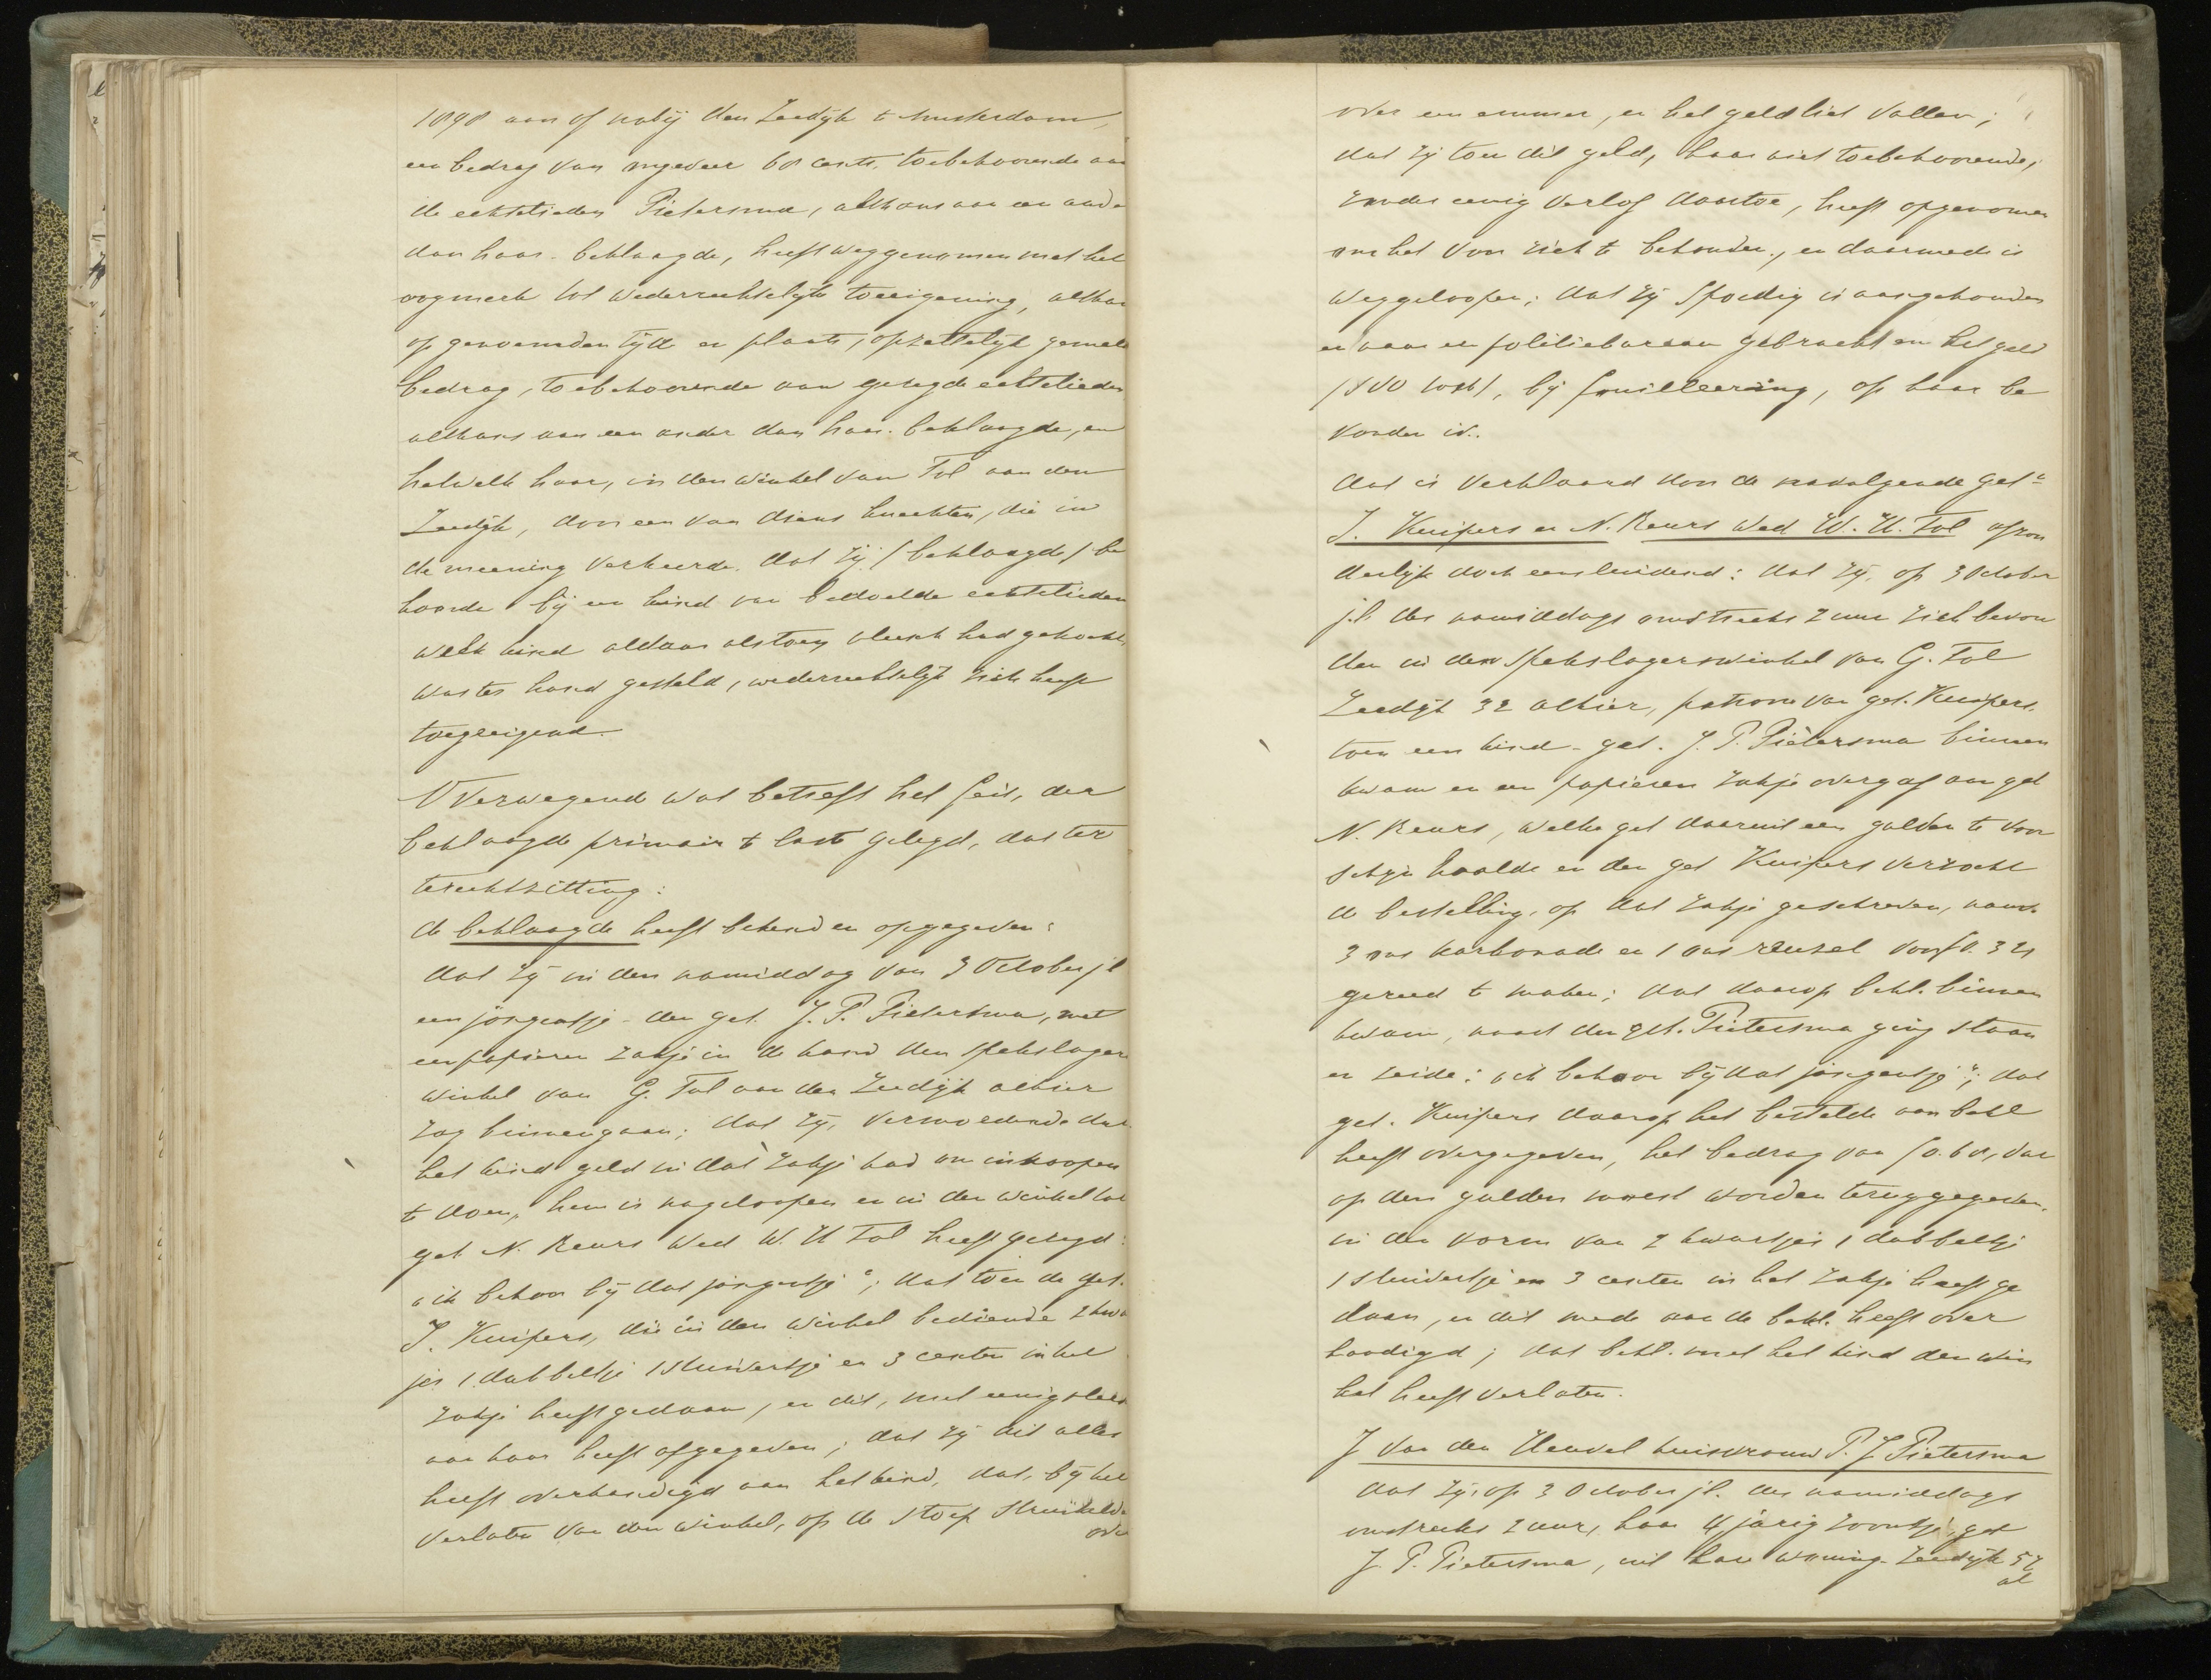 1898 aan of nabij den Zeedijk te Amsterdam,
een bedrag van ongeveer 68 cents, toebehoorende aan
de echtelieden Pietersma, althans aan een ander
dan haar beklaagde, heeft weggenomen met het
oogmerk tot wederrechtelijke toeeigening, althans
op genoemden tijd en plaats, opzettelijk gemeld
bedrag, toebehoorende aan gezegde echtelieden
althans aan een ander dan haar beklaagde, en
hetwelk haar, in den winkel van Tol aan den
Zeedijk, door een van diens knechten, die in
de meening verkeerde dat zij (beklaagde) be
hoorde bij een kind van bedoelde echtelieden
welk kind aldaar alstoen vleesch had gekocht,
was ter hand gesteld, wederrechtelijk zich heeft
toegeeigend.
Overwegende wat betreft het feit, der
beklaagde primair te laste gelegd, dat ter
terechtzitting:
de beklaagde heeft bekend en opgegeven:
dat zij in den namiddag van 3 October jl
een jongentje - den get. J. P. Pietersma, met
een papieren zakje in de hand den spekslagers
winkel van G. Tol aan den Zeedijk alhier
zag binnengaan; dat zij, vermoedende dat
het kind geld in dat zakje had om inkoopen
te doen, hem is nageloopen en in den winkel tot
get N. Reurs Wed W. H Tol heeft gezegd:
"ik behoor bij dat jongentje"; dat toen de get.
J. Kuipers, die in den winkel bediende 2 kwart
jes 1 dubbeltje 1 stuivertje en 3 centen in het
zakje heeft gedaan, en dit, met eenig vleesch
aan haar heeft afgegeven; dat zij dit alles
heeft overhandigd aan het kind, dat, bij het
verlaten van den winkel, op de stoep struikelde
over
over een emmer, en het geld liet vallen;
dat zij toen dit geld, haar niet toebehoorende,
zonder eenig verlof daartoe, heeft opgenomen
om het voor zich te behouden, en daarmede is
weggeloopen; dat zij spoedig is aangehouden
en naar een politiebureau gebracht en het geld
bij fouilleering, op haar be
vonden is.
dat is verklaard door de navolgende getn
J. Kuipers en N. Reurs Wed W. H. Tol afzon
derlijk doch eensluidend: dat zij, op 3 October
j.l. des namiddags omstreeks 2 uur zich bevon
den in den spekslagerswinkel van G. Tol
Zeedijk 32 alhier, patroon van get. Kuipers.
toen een kind - get. J. P. Pietersma binnen
kwam en een papieren zakje overgaf aan get
N. Reurs, welke get daaruit een gulden te voor
schijn haalde en den get Kuipers verzocht
de bestelling, op dat zakje geschreven, naml.
3 ons karbonade en 1 ons reuzel voor f 0.32
gereed te maken; dat daarop bekl. binnen
kwam, naast den get. Pietersma ging staan
en zeide: "ik behoor bij dat jongentje"; dat
get. Kuipers daarop het bestelde aan bekl
heeft overgegeven, het bedrag van f 0.68, dat
op den gulden moest worden teruggegeven,
in den vorm van 2 kwartjes 1 dubbeltje
1 stuivertje en 3 centen in het zakje heeft ge
daan, en dit mede aan de bekl. heeft over
handigd; dat bekl. met het kind den win
kel heeft verlaten.
J van den Heuvel huisvrouw P. J Pietersma
dat zij, op 3 October jl. des namiddags
omstreeks 2 uur, haar 4 jarig zoontje, get
J. P. Pietersma, uit haar woning Zeedijk 52
al